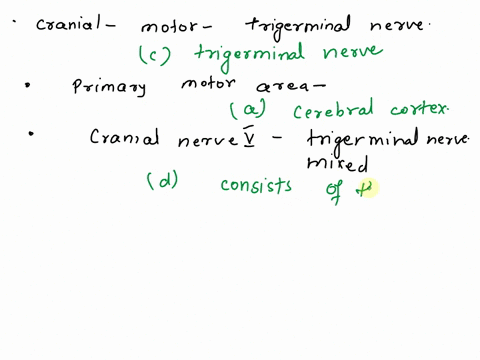 • Cranial- motor- trigerminal nerve.
(c) trigerminal nerve
• Primary motor area-
(a) cerebral cortex.
• Cranial nerve V - trigerminal nerve.
mixed
(d) consists of